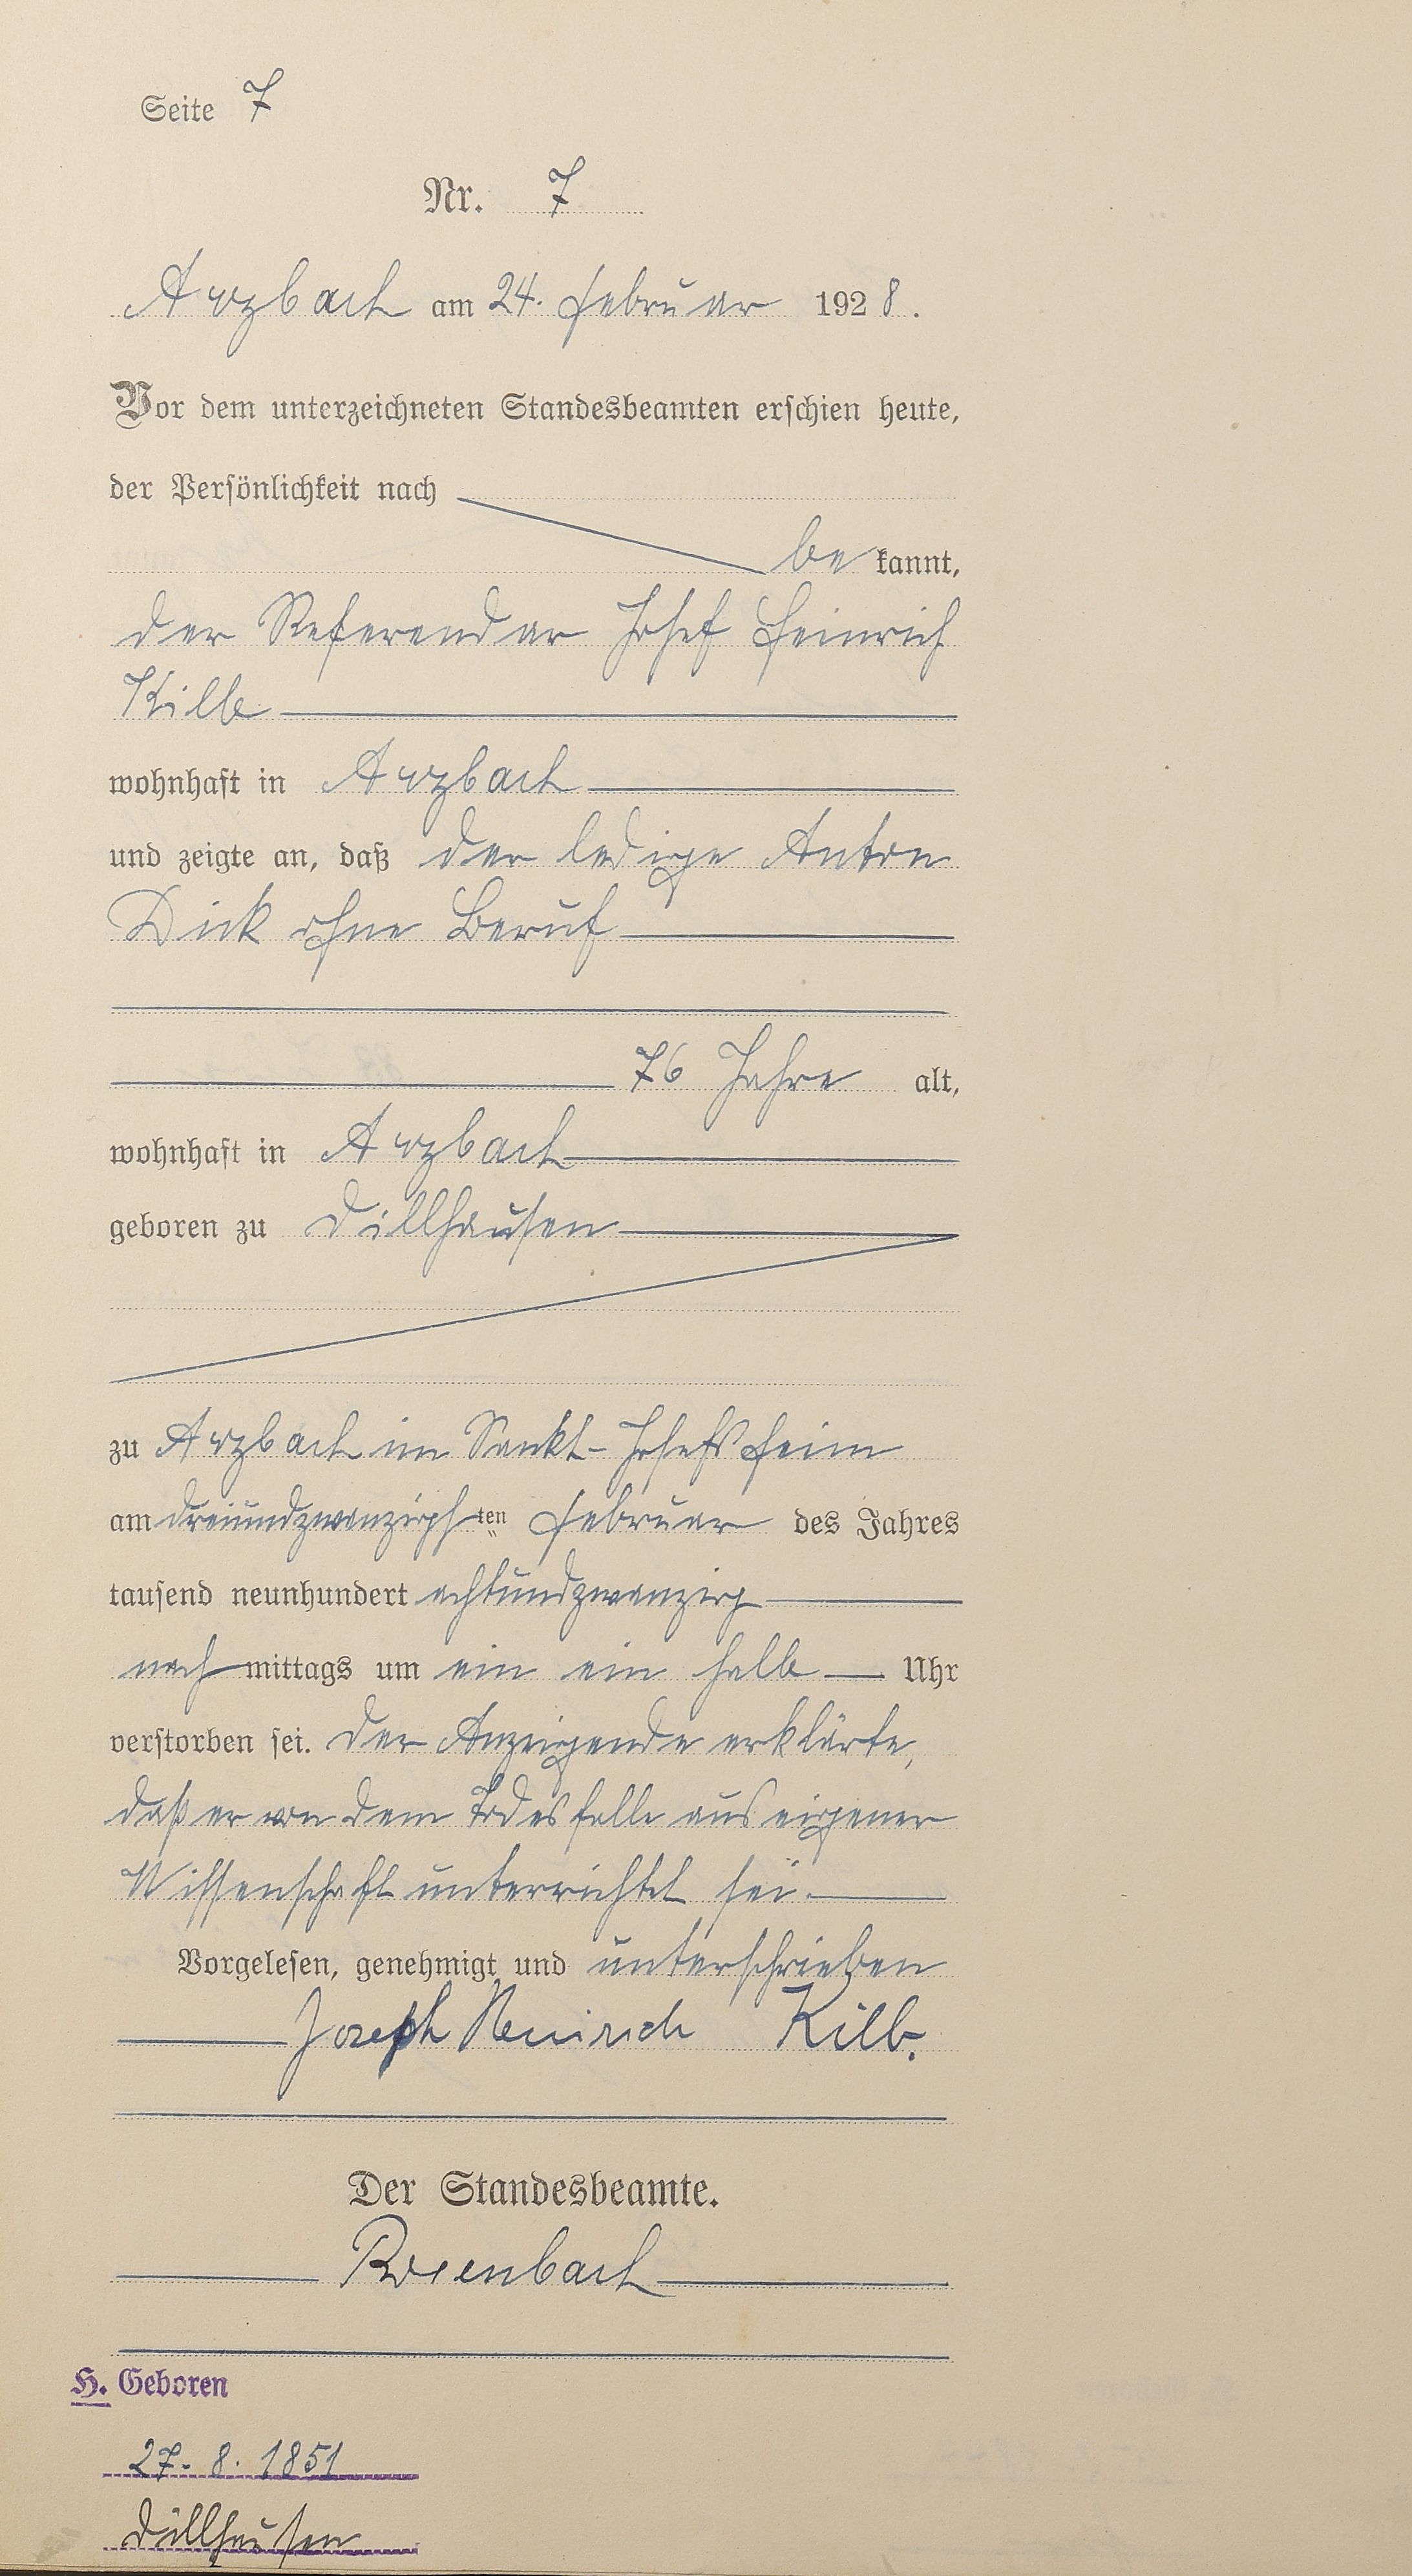 Seite 7
Nr. 7
Arzbach am 24. Februar 1928.
Vor dem unterzeichneten Standesbeamten erschien heute,
der Persönlichkeit nach
be kannt,
der Referendar Josef Heinrich
Kilb
wohnhaft in Arzbach
und zeigte an, daß der ledige Anton
Dick ohne Beruf
76 Jahre alt,
wohnhaft in Arzbach
geboren zu Dillhausen
zu Arzbach im Sankt-Josefsheim
am dreiundzwanzigsten Februar des Jahres
tausend neunhundert achtundzwanzig
nachmittags um ein ein halb Uhr
verstorben sei. Der Anzeigende erklärte,
daß er von dem Todesfalle aus eigener
Wissenschaft unterrichtet sei.
Vorgelesen, genehmigt und unterschrieben
Joseph Heinrich Kilb.
Der Standesbeamte.
H. Geboren
27. 8. 1851
Dillhausen